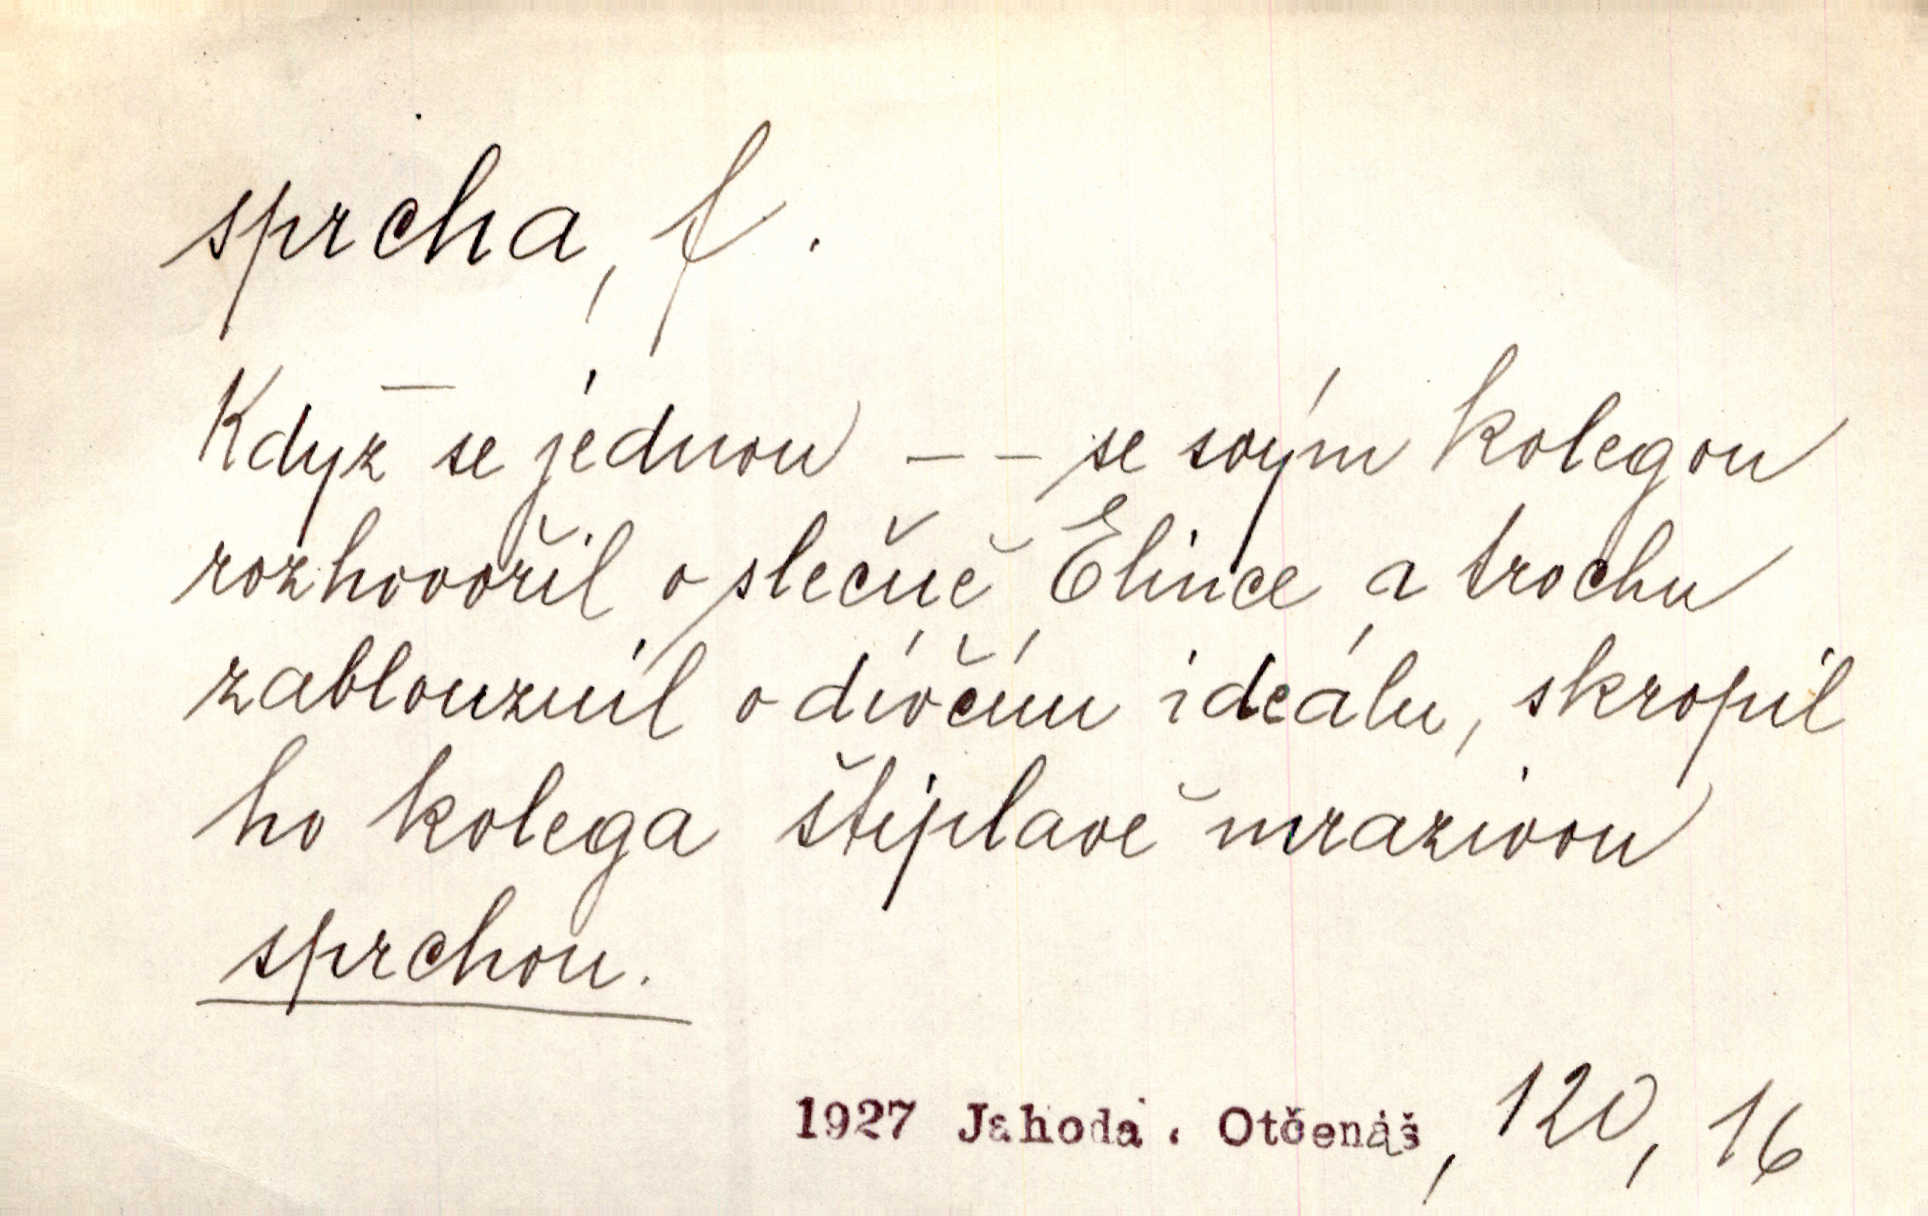 sprcha, f.
Když se jednou – – se svým kolegou
rozhovořil o slečně Elince a trochu
zablouznil o dívčím ideálu, skropil
ho kolega štiplavě mrazivou
sprchou.
1927 Jahoda. Otčenáš, 120, 16